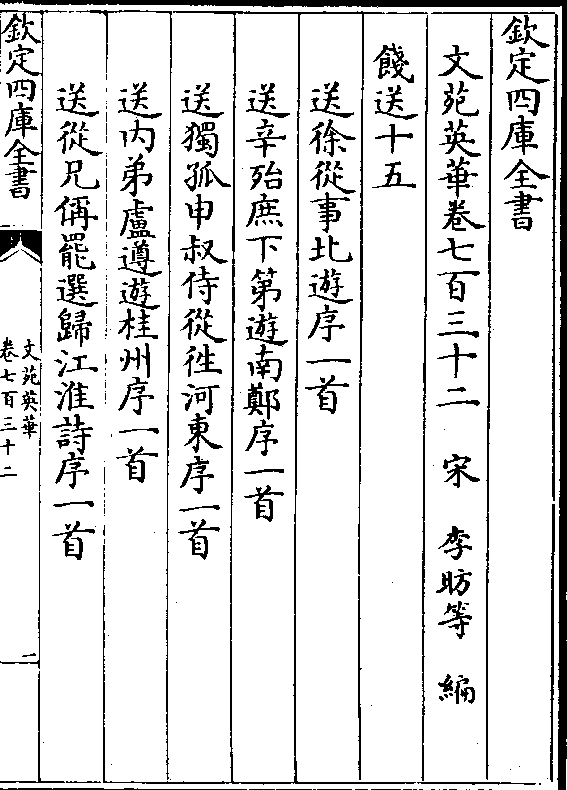 欽定四庫全書
文苑英華卷七百三十二　宋　李昉等　編
餞送十五
送徐從事北遊序一首
送辛殆庶下第遊南鄭序一首
送獨孤申叔侍從徃河東序一首
送内弟盧遵遊桂州序一首
送從兄偁罷選歸江淮詩序一首
欽定四庫全書
文苑英華
卷七百三十二
一